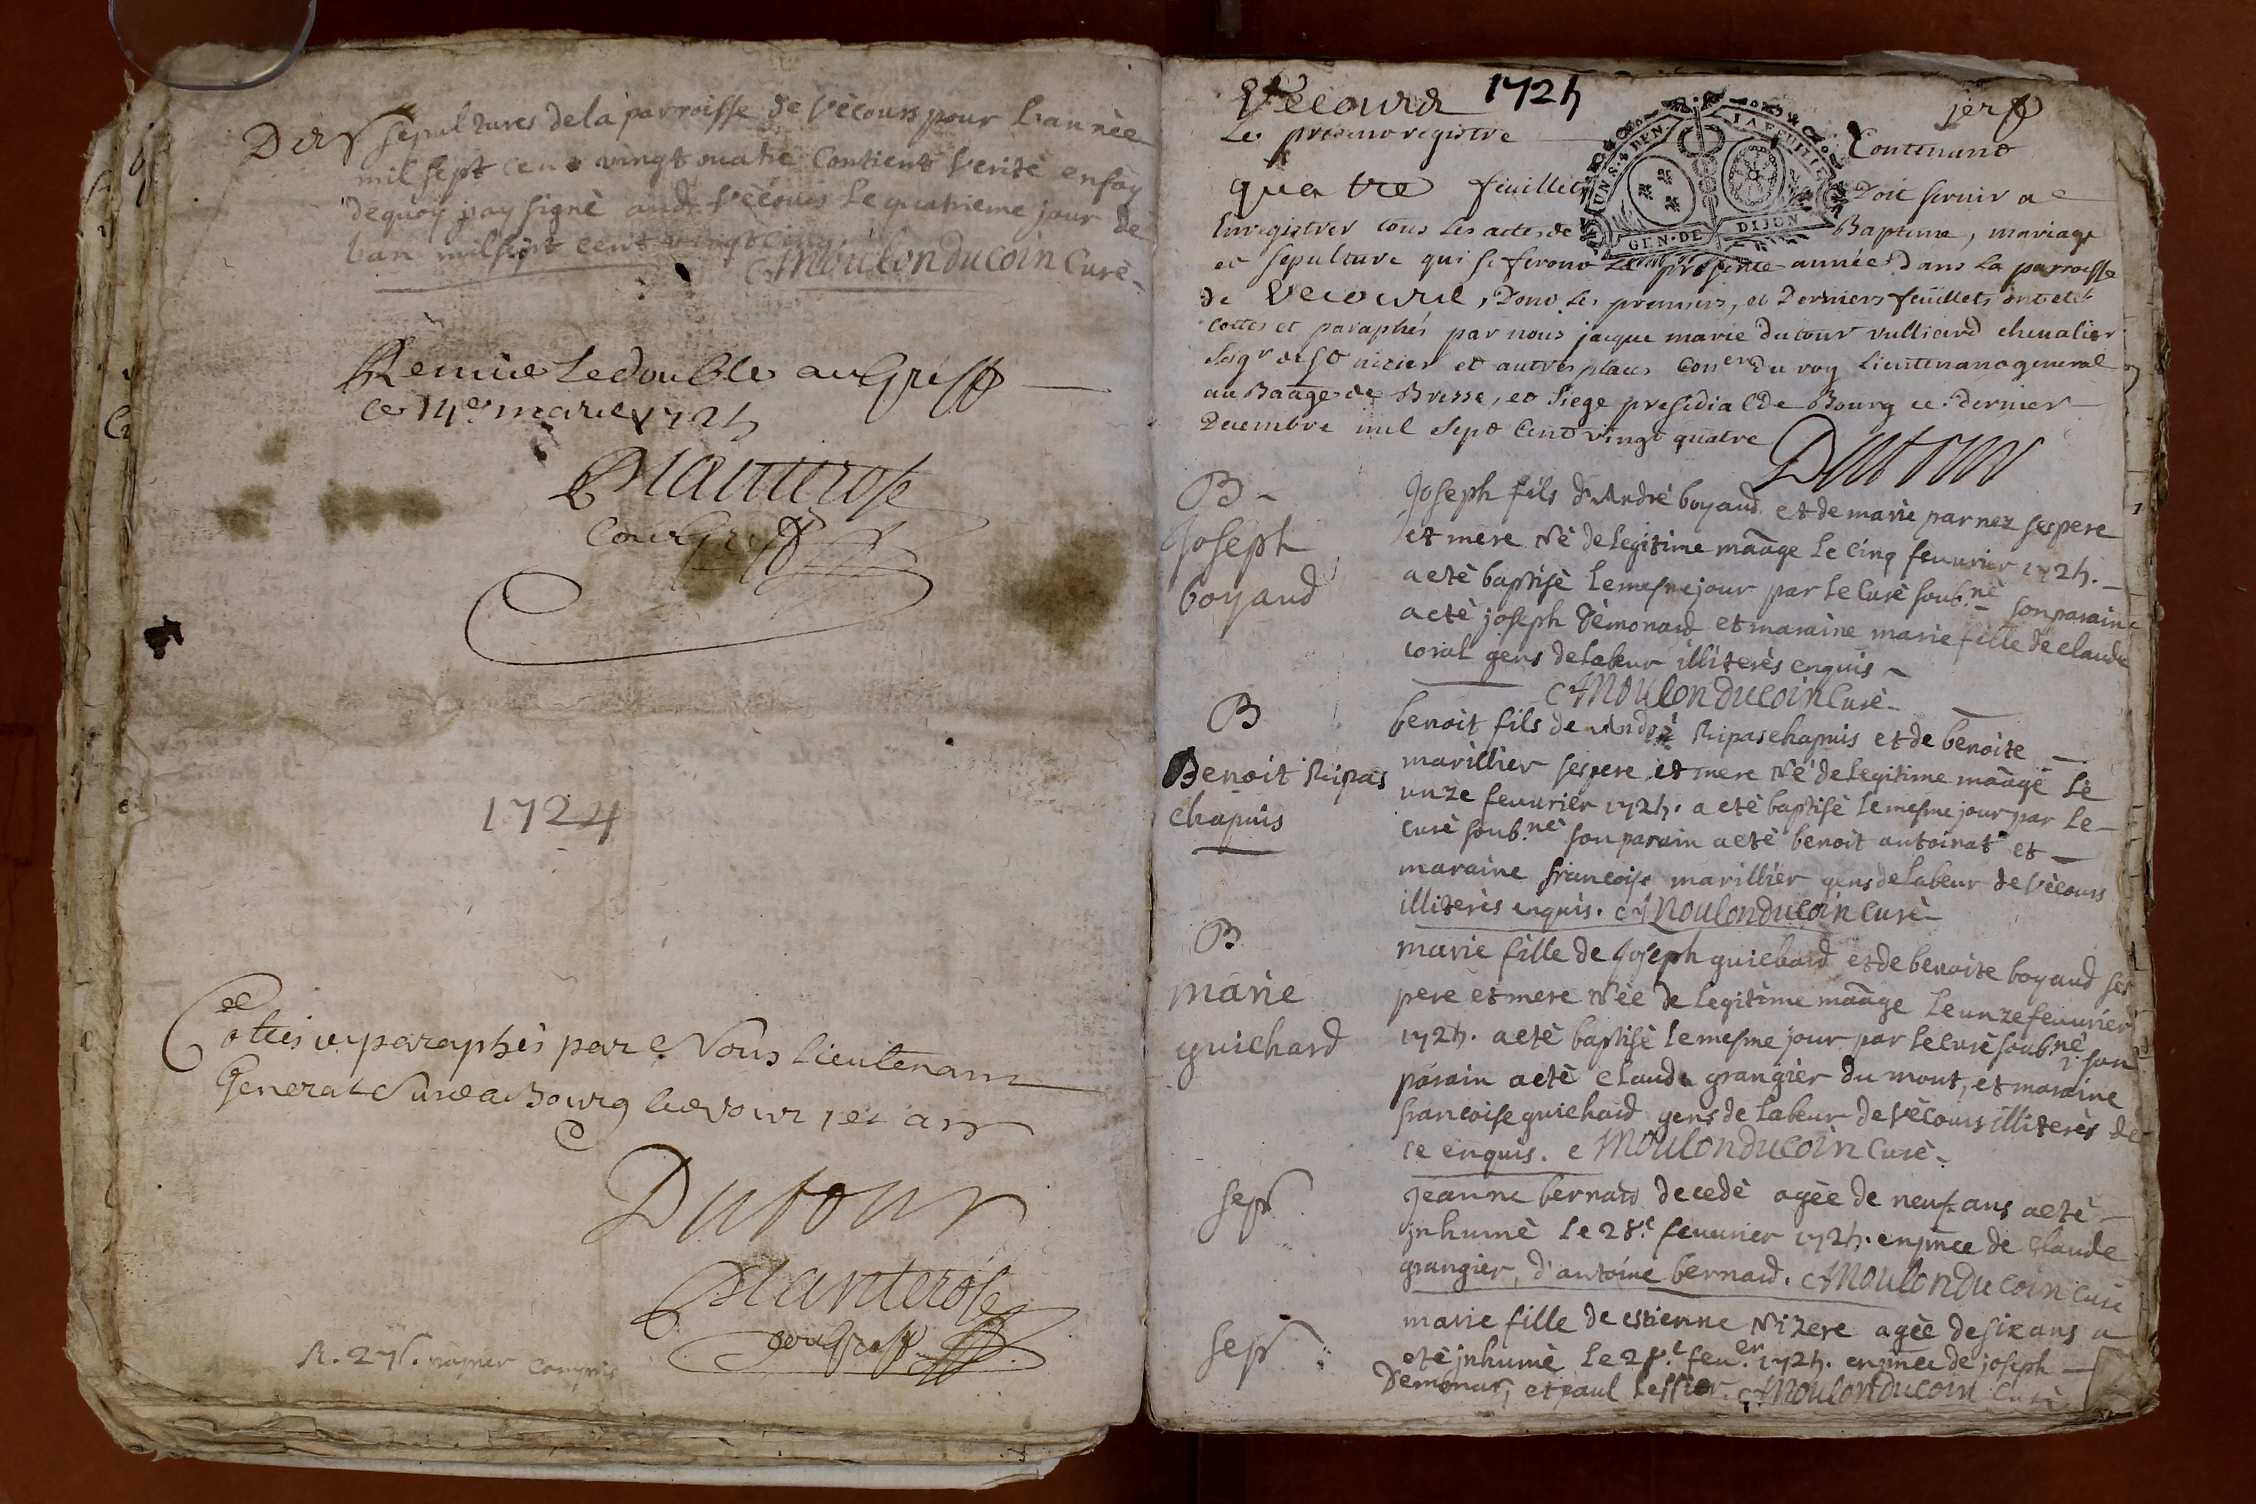 Der
sepultures de la parroisse de Vècours pour L'annèe
mil sept cent vingt quatre Contient Veritè en foy
de quoy jay signè aud. Vècours Le quatrieme jour de
jan mil sept cent vingt cinq.
C Moulonducoin Curè
Remis Le double au Greff
ce 14e mars 1725
Planterose
Com Greff
1724
Cottés et paraphés par Nous Lieutenant
General Civil a Bourg
Dutour
Planterose
Com Greff
R. 27s. papier compris
Vecours 1725
jer f
Le present registre Contenant
quatre feuillets Doit servir a
Enregistrer tous Les actes de Baptême, mariage
et sepulture qui se feront La presente année Dans La parroisse
de Vecours, Dont Les premiers, et Derniers feuillets ont eté
cottes et paraphés par nous jacque marie dutour vulliard chevalier
Seigr de St nicier et autres places Coner du roy Lieutenant general
au Baage de Bresse, et Siege presidial de Bourg ce dernier
Decembre mil Sept Cent vingt quatre
Dutour
UN S. 4 DEN. LA FEUILLE
GEN. DE DIJON
B
Joseph
boyaud
Joseph fils d'Andrè boyaud et de marie parnez ses pere
et mere Nè de legitime māage Le cinq feuurier 1725.
a etè baptisè Le mesme jour par Le Curè soub.nè son paraine
a etè joseph Vèmonard et maraine marie fille de claude
coral gens de Labeur illiterès enquis
C Moulonducoin Curè
B
Benoit Ripas
chapuis
benoit fils de Andrè Ripaschapuis et de benoite
marillier ses pere et mere Nè de legitime māage Le
unze feuurier 1725. a etè baptisè Le mesme jour par Le
curè soub.nè son parain a etè benoit antoinat et
maraine francoise marillier gens de Labeur de Vècours
illiterès enquis. C Moulonducoin Curè
B
marie
guichard
marie fille de Joseph guichard et de benoite boyaud ses
pere et mere Nèe de legitime māage Le unze feuurier
1725. a etè baptisè Le mesme jour par Le Curè soub.nè son
parain a etè claude grangier du mont, et maraine
francoise guichard gens de Labeur de Vècours illiterès de
ce enquis. C Moulonducoin Curè
sepr
Jeanne bernard decedè agèe de neuf ans a etè
jnhumè Le 28e feuurier 1725. en pnce de Claude
grangier, d'antoine bernard. C Moulonducoin Curè
sepr
marie fille de estienne Nizere agèe de six ans a
etè jnhumè Le 28.e feu.er 1725. en pnce de joseph
Vemonard, et paul tessier. C Moulonducoin Curè